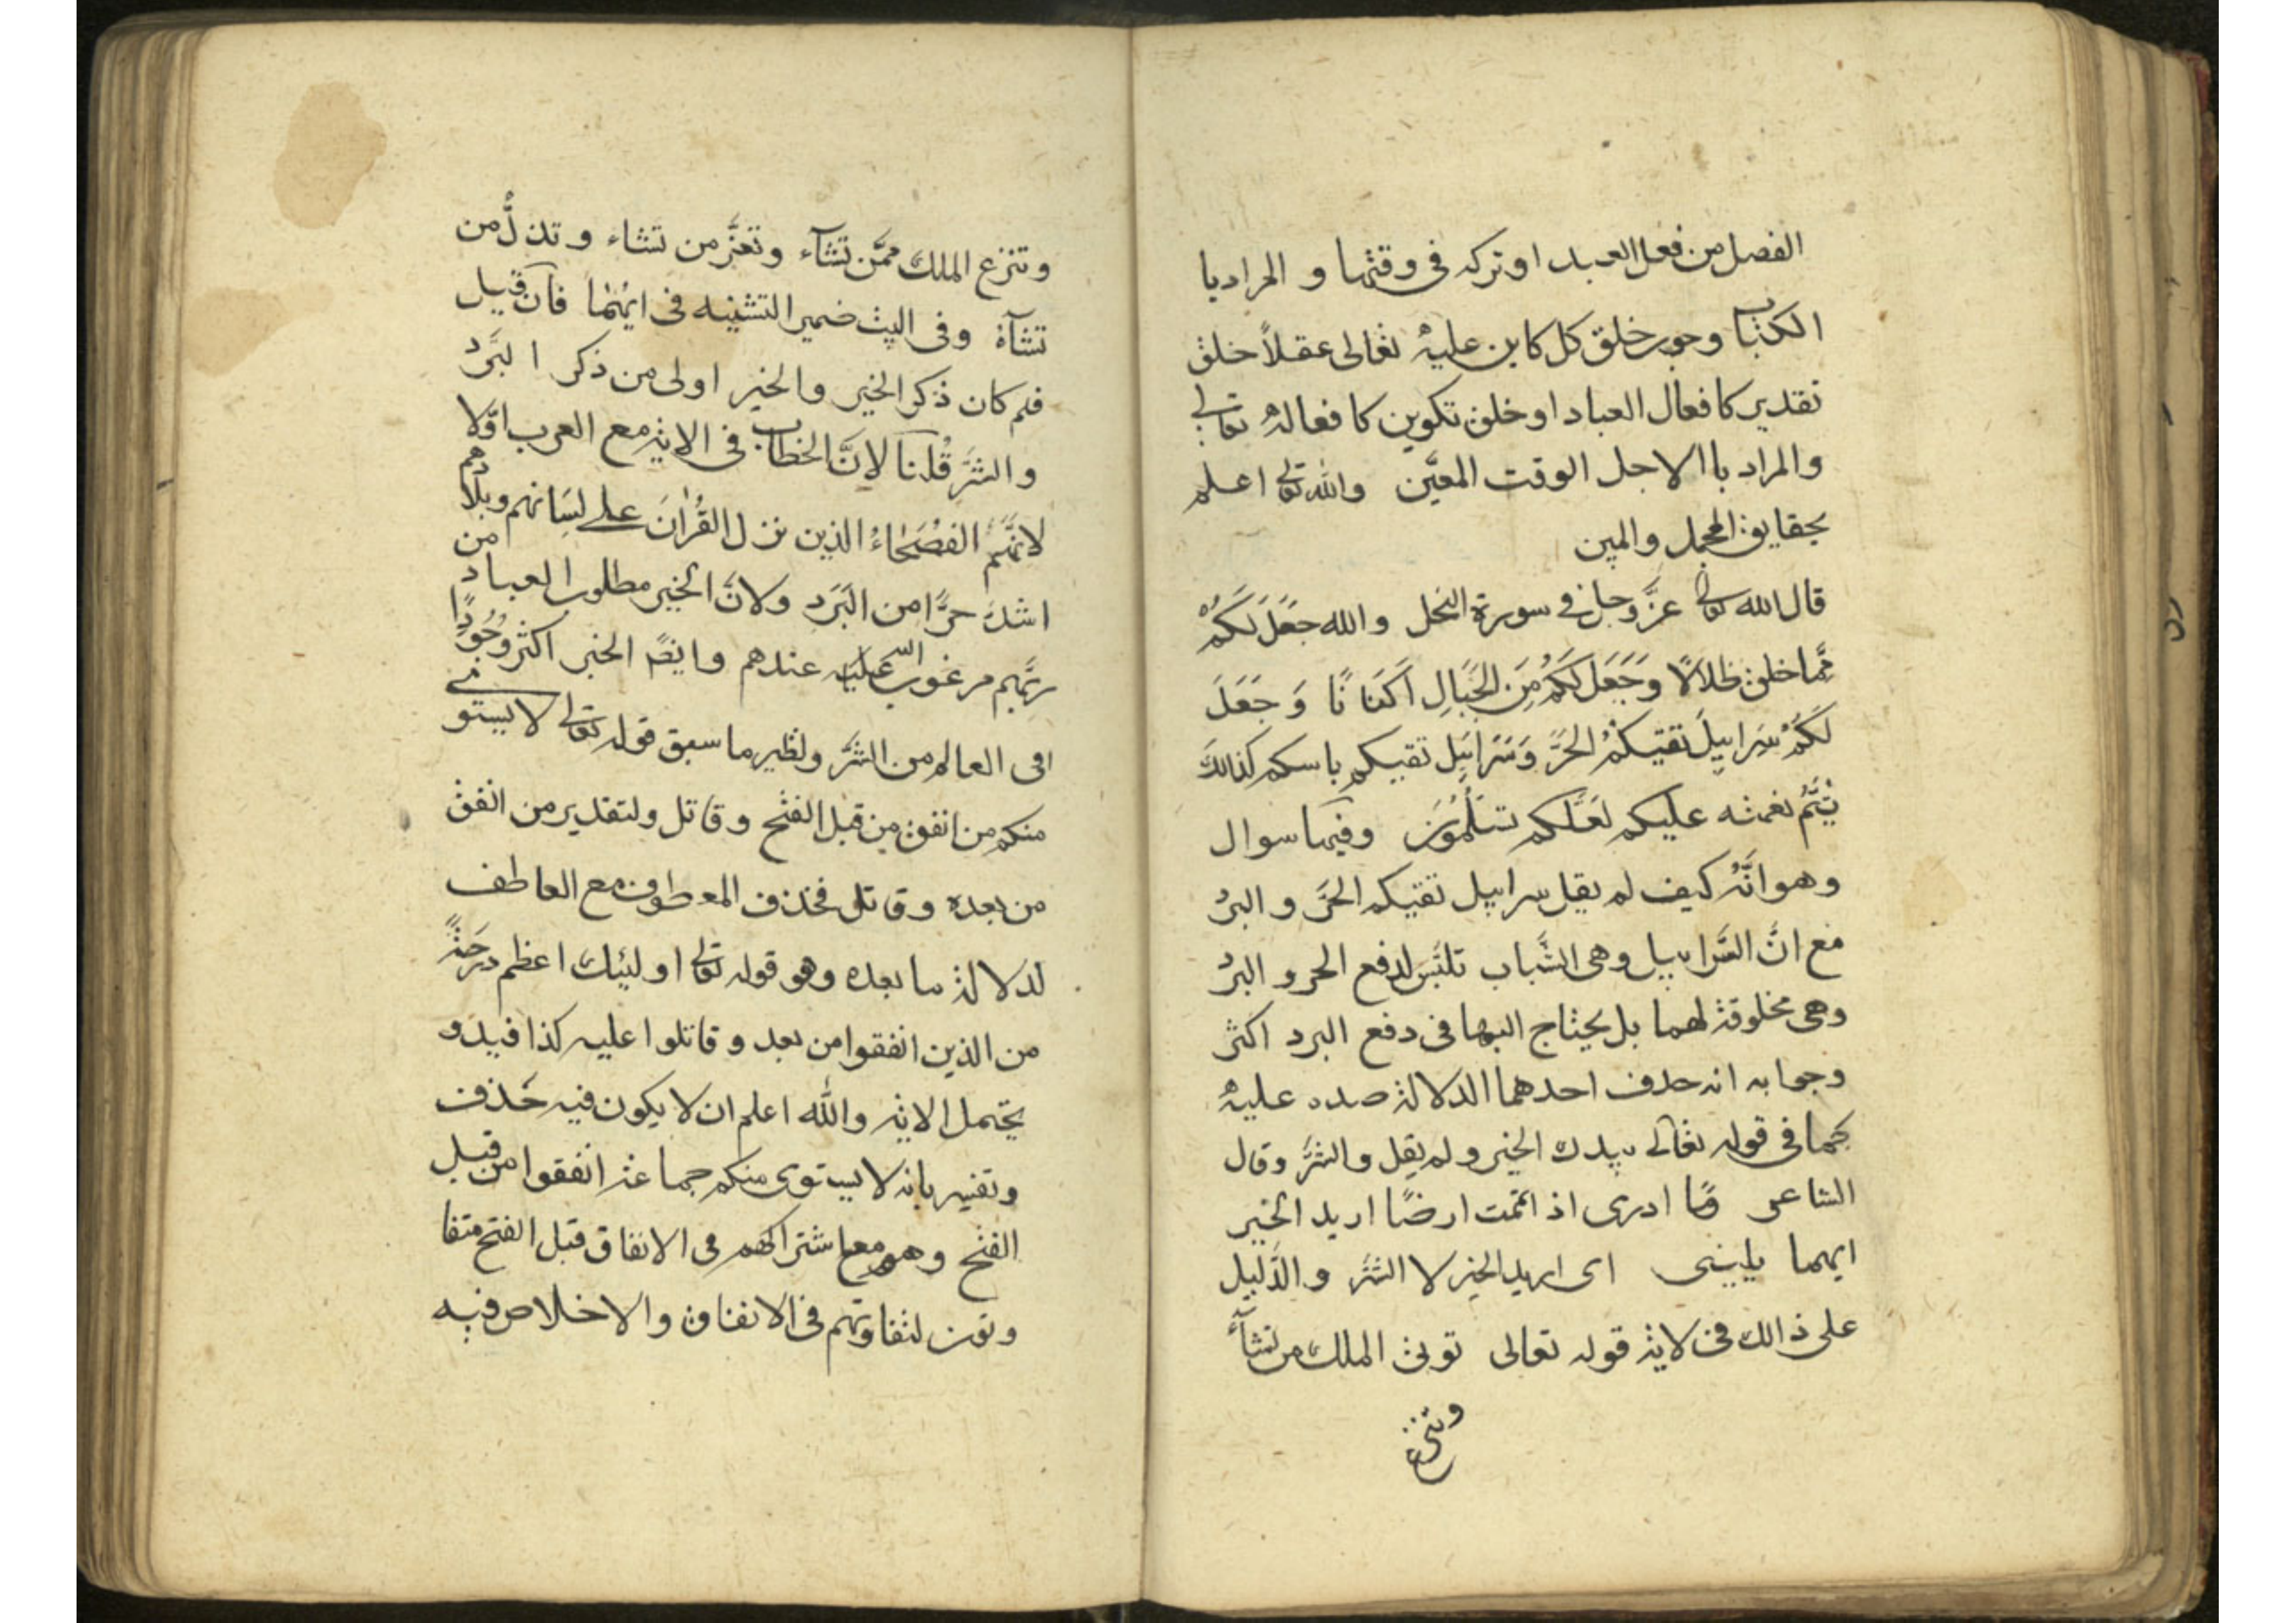 الفصل من فعل العبد او تركه فى وقتها و المراد با
الكتاب وجوب خلق كل كاين عليه تعالى عقلاً خلق
تقدير كافعال العباد او خلق تكوين كافعاله تعالى
والمراد باالاجل الوقت المعيَّن والله تعالى اعلم
بحقايق المجمل والمبين
قال الله تعالى عزَّ وجل فى سورة النحل والله جَعَلَ لَكُمْ
مِمَّا خلق ظلالًا وَجَعَلَ لَكُمْ مِنَ الجِبَالِ اَكنَانًا وَ جَعَلَ
لَكُمْ سَرابيلَ تقيكُمْ الحَرَّ وَسَرَابيل تقيكم باسكم كذالك
يُتِمُّ نعمته عليكم لعَلَّكم تسْلمُونَ وفيها سوال
وهو انَّهُ كيف لم يقل سرابيل تقيكم الحَرَّ و البرد
مع انَّ السَّرابيل وهى الثِّياب تلبَس لدفع الحر و البرد
وهى مخلوقة لهما بل يحتاج اليها فى دفع البرد اكثر
وجوابه انه حذف احدهما لدلالة ضده عليه
كما فى قوله تعالى بيدك الخير ولم يقل والشَّر وقال
الشاعر فما ادرى اذ ائمّت ارضًا اريد الخير
ايهما يلينى اى اريد الخير لا الشَّر و الدَّليل
على ذالك فى لاية قوله تعالى توتى الملك من تشآء
وتنزع
وتنزع الملك ممَّن تشآء وتعزَّ من تشاء و تذلُّ من
تشآء وفى البيت ضمير التثنيه فى ايهما فان قيل
فلم كان ذكر الخير والخير اولى من ذكر البَرد
والشَّرِ قُلنا لانَّ الخطاب فى الاية مع العرب اوَّلا
لانَّهُمْ الفُصَحَاءُ الذين نزل القُرْانَ على لِسَانهم وبلادهم
اشدّ حرًّا من البَرَد ولانَّ الخير مطلوب العباد من
ربّهم مرغوب اليه عندهم وايضً الخير اكثر وُجُودًا
فى العالم من الشَّر ونظير ما سبق قوله تعالى لا يستوى
منكم من انفق من قبل الفتح وقاتل ولتقدير من انفق
من بعده وقاتل فحذف المعطوف مع العاطف
لدلالة ما بعده وهو قوله تعالى اوليئك اعظم درجةً
من الذين انفقوا من بعد وقاتلوا عليه كذا قيل و
يحتمل الاية والله اعلم ان لا يكون فيه حَذف
وتفسير بانه لا يستوى منكم جماعة انفقوا من قبل
الفتح وهم مع اشتراكهم فى الانفاق قبل الفتح متفا
وتون لتفاوتهم فى الانفاق والاخلاص فيه